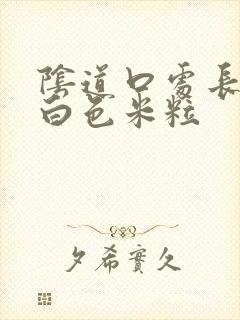 陰道口處長
白色米粒
夕希實久